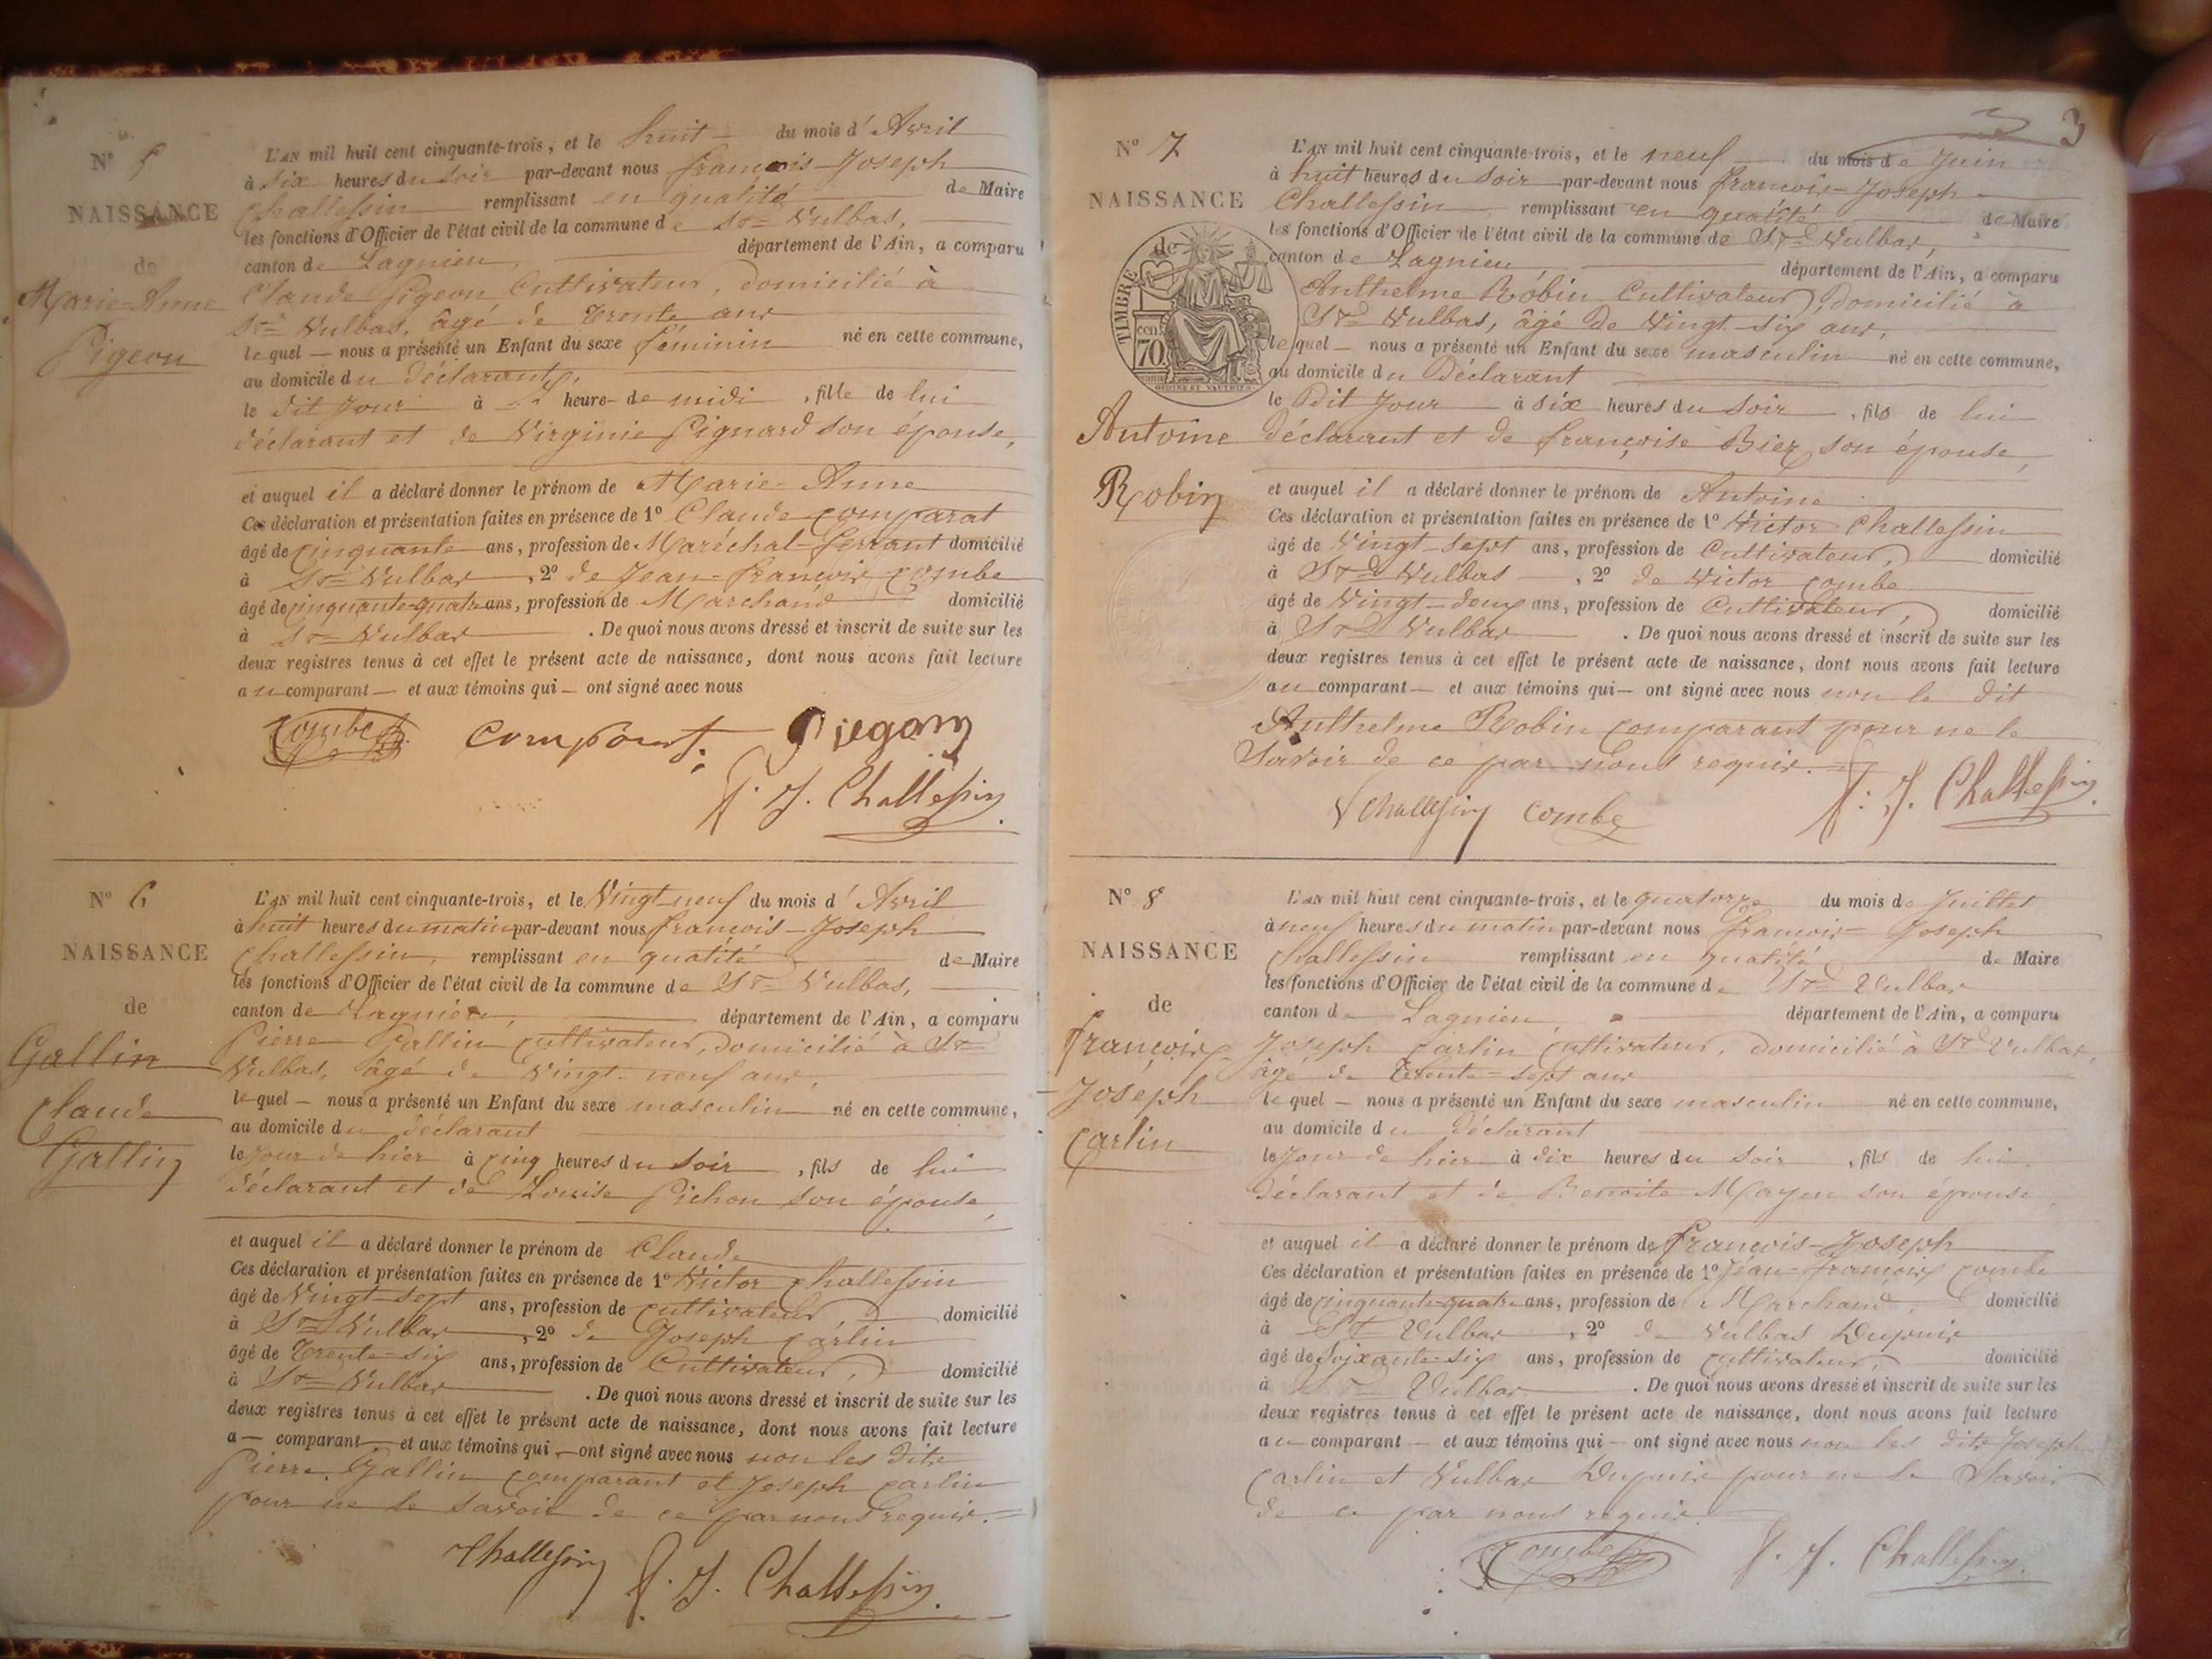 N° 5
NAISSANCE
de
Marie-Anne
Pigeon
L'AN mil huit cent cinquante-trois, et le huit du mois d'Avril
à six heures du soir par-devant nous françois-Joseph
Challessin remplissant en qualité de Maire
les fonctions d'Officier de l'état civil de la commune de St Vulbas,
canton de Lagnieu, département de l'Ain, a comparu
Claude Pigeon Cultivateur, domicilié à
St Vulbas, âgé de Trente ans
lequel nous a présenté un Enfant du sexe féminin né en cette commune,
au domicile du Déclarant,
le dit jour à heure de midi, fille de lui
déclarant et de Virginie Pignard son épouse,
et auquel il a déclaré donner le prénom de Marie-Anne
Ces déclaration et présentation faites en présence de 1° Claude comparat
âgé de cinquante ans, profession de Maréchal-ferrant domicilié
à St Vulbas, 2° de Jean-françois combe
âgé de cinquante-quatre ans, profession de Marchand domicilié
à St Vulbas. De quoi nous avons dressé et inscrit de suite sur les
deux registres tenus à cet effet le présent acte de naissance, dont nous avons fait lecture
au comparant et aux témoins qui ont signé avec nous
Combe Pigeon
f. J. Challessin
N° 6
NAISSANCE
de
Gallin
Claude
Gallin
L'AN mil huit cent cinquante-trois, et le Vingt-neuf du mois d'Avril
à huit heures du matin par-devant nous françois-Joseph
Challessin, remplissant en qualité de Maire
les fonctions d'Officier de l'état civil de la commune de St Vulbas,
canton de Lagnieu, département de l'Ain, a comparu
Pierre Gallin cultivateur, domicilié à St
Vulbas, âgé de Vingt-neuf ans,
lequel nous a présenté un Enfant du sexe masculin né en cette commune,
au domicile du déclarant
le Jour de hier à cinq heures du soir, fils de lui
déclarant et de Louise Pichon son épouse,
et auquel il a déclaré donner le prénom de Claude
Ces déclaration et présentation faites en présence de 1° Victor Challessin
âgé de Vingt-sept ans, profession de cultivateur domicilié
à St Vulbas, 2° de Joseph Carlin
âgé de Trente-six ans, profession de Cultivateur, domicilié
à St Vulbas. De quoi nous avons dressé et inscrit de suite sur les
deux registres tenus à cet effet le présent acte de naissance, dont nous avons fait lecture
a comparant et aux témoins qui ont signé avec nous non les dits
Pierre Gallin comparant et Joseph carlin
pour ne le savoir de ce par nous requis.
Challessin f. J. Challessin
3
N° 7
NAISSANCE
de
TIMBRE
cen. 70
Antoine
Robin
L'AN mil huit cent cinquante-trois, et le neuf du mois de Juin
à huit heures du soir par-devant nous françois-Joseph
Challessin remplissant en qualité de Maire
les fonctions d'Officier de l'état civil de la commune de St Vulbas,
canton de Lagnieu département de l'Ain, a comparu
Anthelme Robin Cultivateur, domicilié à
St Vulbas, âgé de Vingt-six ans,
lequel nous a présenté un Enfant du sexe masculin né en cette commune,
au domicile du Déclarant
le Dit Jour à six heures du soir, fils de lui
déclarant et de françoise Bier son épouse,
et auquel il a déclaré donner le prénom de Antoine
Ces déclaration et présentation faites en présence de 1° Victor Challessin
âgé de Vingt-sept ans, profession de Cultivateur, domicilié
à St Vulbas, 2° de Victor Combe
âgé de Vingt-deux ans, profession de Cultivateur, domicilié
à St Vulbas. De quoi nous avons dressé et inscrit de suite sur les
deux registres tenus à cet effet le présent acte de naissance, dont nous avons fait lecture
au comparant et aux témoins qui ont signé avec nous non le dit
Anthelme Robin comparant pour ne le
Savoir de ce par nous requis.
V Challessin Combe f. J. Challessin
N° 8
NAISSANCE
de
françois
Joseph
Carlin
L'AN mil huit cent cinquante-trois, et le quatorze du mois de Juillet
à neuf heures du matin par-devant nous françois Joseph
Challessin remplissant en qualité de Maire
les fonctions d'Officier de l'état civil de la commune de St Vulbas
canton de Lagnieu, département de l'Ain, a comparu
Joseph Carlin Cultivateur, domicilié à St Vulbas,
âgé de Trente-sept ans
lequel nous a présenté un Enfant du sexe masculin né en cette commune,
au domicile du déclarant
le Jour de hier à dix heures du soir, fils de lui
déclarant et de Benoite Mayen son épouse
et auquel il a déclaré donner le prénom de françois-Joseph
Ces déclaration et présentation faites en présence de 1° Jean-françois combe
âgé de cinquante-quatre ans, profession de Marchand, domicilié
à St Vulbas, 2° de Vulbas Dupuis
âgé de Soixante-six ans, profession de cultivateur, domicilié
à St Vulbas. De quoi nous avons dressé et inscrit de suite sur les
deux registres tenus à cet effet le présent acte de naissance, dont nous avons fait lecture
au comparant et aux témoins qui ont signé avec nous non les dits Joseph
Carlin et Vulbas Dupuis pour ne le Savoir
de ce par nous requis
Combe f. J. Challessin